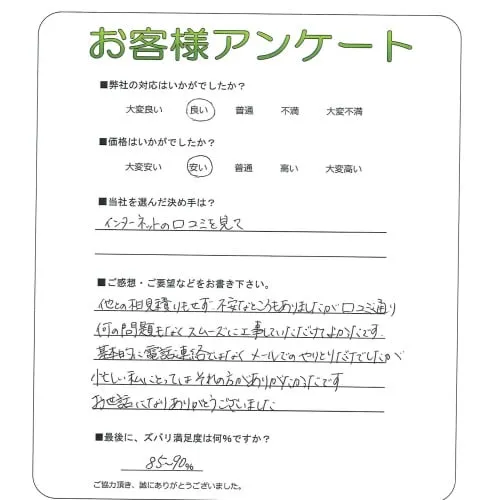 お客様アンケート
■弊社の対応はいかがでしたか?
大変良い 良い 普通 不満 大変不満
■価格はいかがでしたか?
大変安い 安い 普通 高い 大変高い
■当社を選んだ決め手は?
インターネットの口コミを見て
■ご感想・ご要望などをお書き下さい。
他との相見積りもせず 不安なところもありましたが口コミ通り
何の問題もなくスムーズに工事していただけてよかったです。
基本的に電話連絡ではなくメールでのやりとりだけでしたが
忙しい私にとってはそれの方がありがたかったです
お世話になりありがとうございました
■最後に、ズバリ満足度は何%ですか?
85~90%
ご協力頂き、誠にありがとうございました。